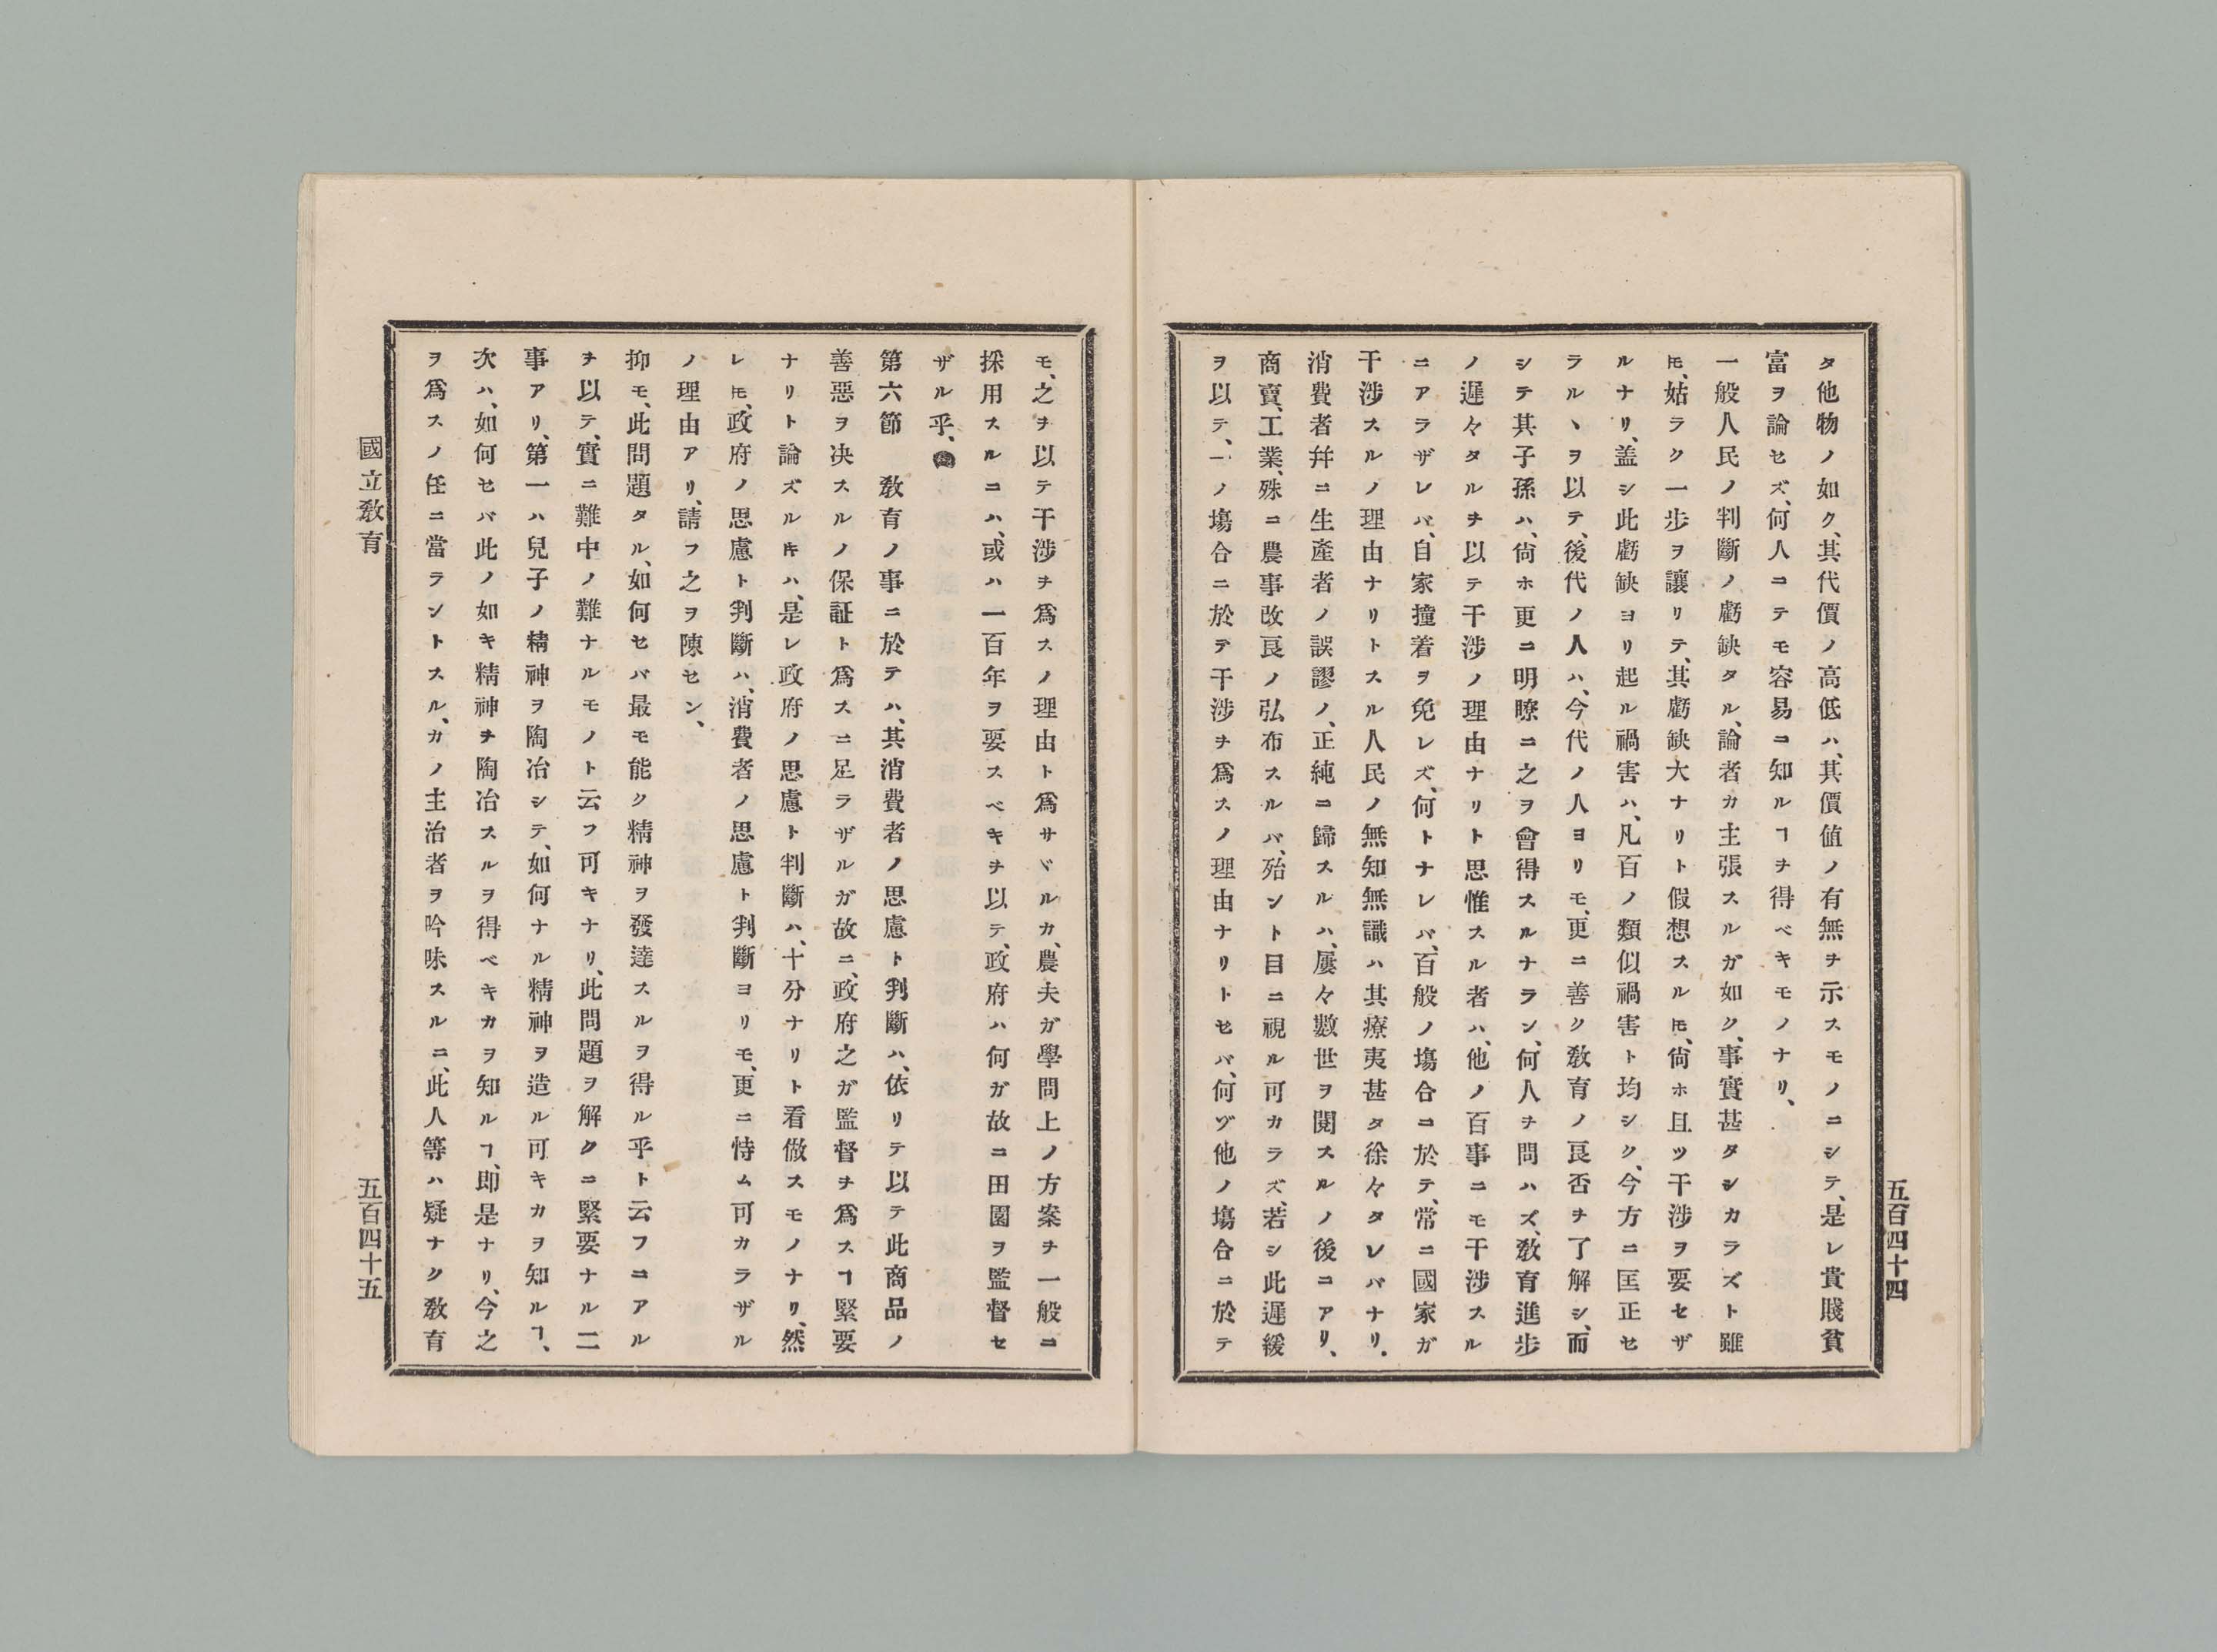 タ他物ノ如ク、其代價ノ高低ハ、其價値ノ有無ヲ示スモノニシテ、是レ貴賤貧
富ヲ論セズ、何人ニテモ容易ニ知ルヿヲ得ベキモノナリ、
一般人民ノ判斷ノ虧缺タル、論者カ主張スルガ如ク、事實甚タシカラズト雖
𪜈、姑ラク一歩ヲ讓リテ、其虧缺大ナリト假想スル𪜈、尙ホ且ツ干渉ヲ要セザ
ルナリ、盖シ此虧缺ヨリ起ル禍害ハ、凡百ノ類似禍害ト均シク、今方ニ匡正セ
ラルヽヲ以テ、後代ノ人ハ、今代ノ人ヨリモ、更ニ善ク敎育ノ良否ヲ了解シ、而
シテ其子孫ハ、尙ホ更ニ明瞭ニ之ヲ會得スルナラン、何人ヲ問ハズ、敎育進步
ノ遲々タルヲ以テ干渉ノ理由ナリト思惟スル者ハ、他ノ百事ニモ干渉スル
ニアラザレバ、自家撞着ヲ免レズ、何トナレバ、百般ノ塲合ニ於テ、常ニ國家ガ
干渉スルノ理由ナリトスル人民ノ無知無識ハ其療夷甚タ徐々タレバナリ、
消費者幷ニ生產者ノ誤謬ノ、正純ニ歸スルハ、屡々數世ヲ閲スルノ後ニアリ、
商賣、工業、殊ニ農事改良ノ弘布スルバ、殆ント目ニ視ル可カラズ、若シ此遲緩
ヲ以テ、一ノ塲合ニ於テ干渉ヲ爲スノ理由ナリトセバ、何ヅ他ノ塲合ニ於テ
五百四十四
モ、之ヲ以テ干渉ヲ爲スノ理由ト爲サヾルカ、農夫ガ學問上ノ方案ヲ一般ニ
採用スルニハ、或ハ一百年ヲ要スベキヲ以テ、政府ハ何ガ故ニ田園ヲ監督セ
ザル乎、
第六節　敎育ノ事ニ於テハ、其消費者ノ思慮ト判斷ハ、依リテ以テ此商品ノ
善惡ヲ决スルノ保証ト爲スニ足ラザルガ故ニ、政府之ガ監督ヲ爲スヿ緊要
ナリト論ズル𪜈ハ、是レ政府ノ思慮ト判斷ハ、十分ナリト看傚スモノナリ、然
レ𪜈、政府ノ思慮ト判斷ハ、消費者ノ思慮ト判斷ヨリモ、更ニ恃ム可カラザル
ノ理由アリ、請フ之ヲ陳セン、
抑モ、此問題タル、如何セバ最モ能ク精神ヲ發達スルヲ得ル乎ト云フニアル
ヲ以テ、實ニ難中ノ難ナルモノト云フ可キナリ、此問題ヲ解クニ緊要ナル二
事アリ、第一ハ兒子ノ精神ヲ陶冶シテ、如何ナル精神ヲ造ル可キカヲ知ルヿ、
次ハ、如何セバ此ノ如キ精神ヲ陶冶スルヲ得ベキカヲ知ルヿ、即是ナリ、今之
ヲ爲スノ任ニ當ラントスル、カノ主治者ヲ吟味スルニ、此人等ハ疑ナク敎育
國立敎育
五百四十五